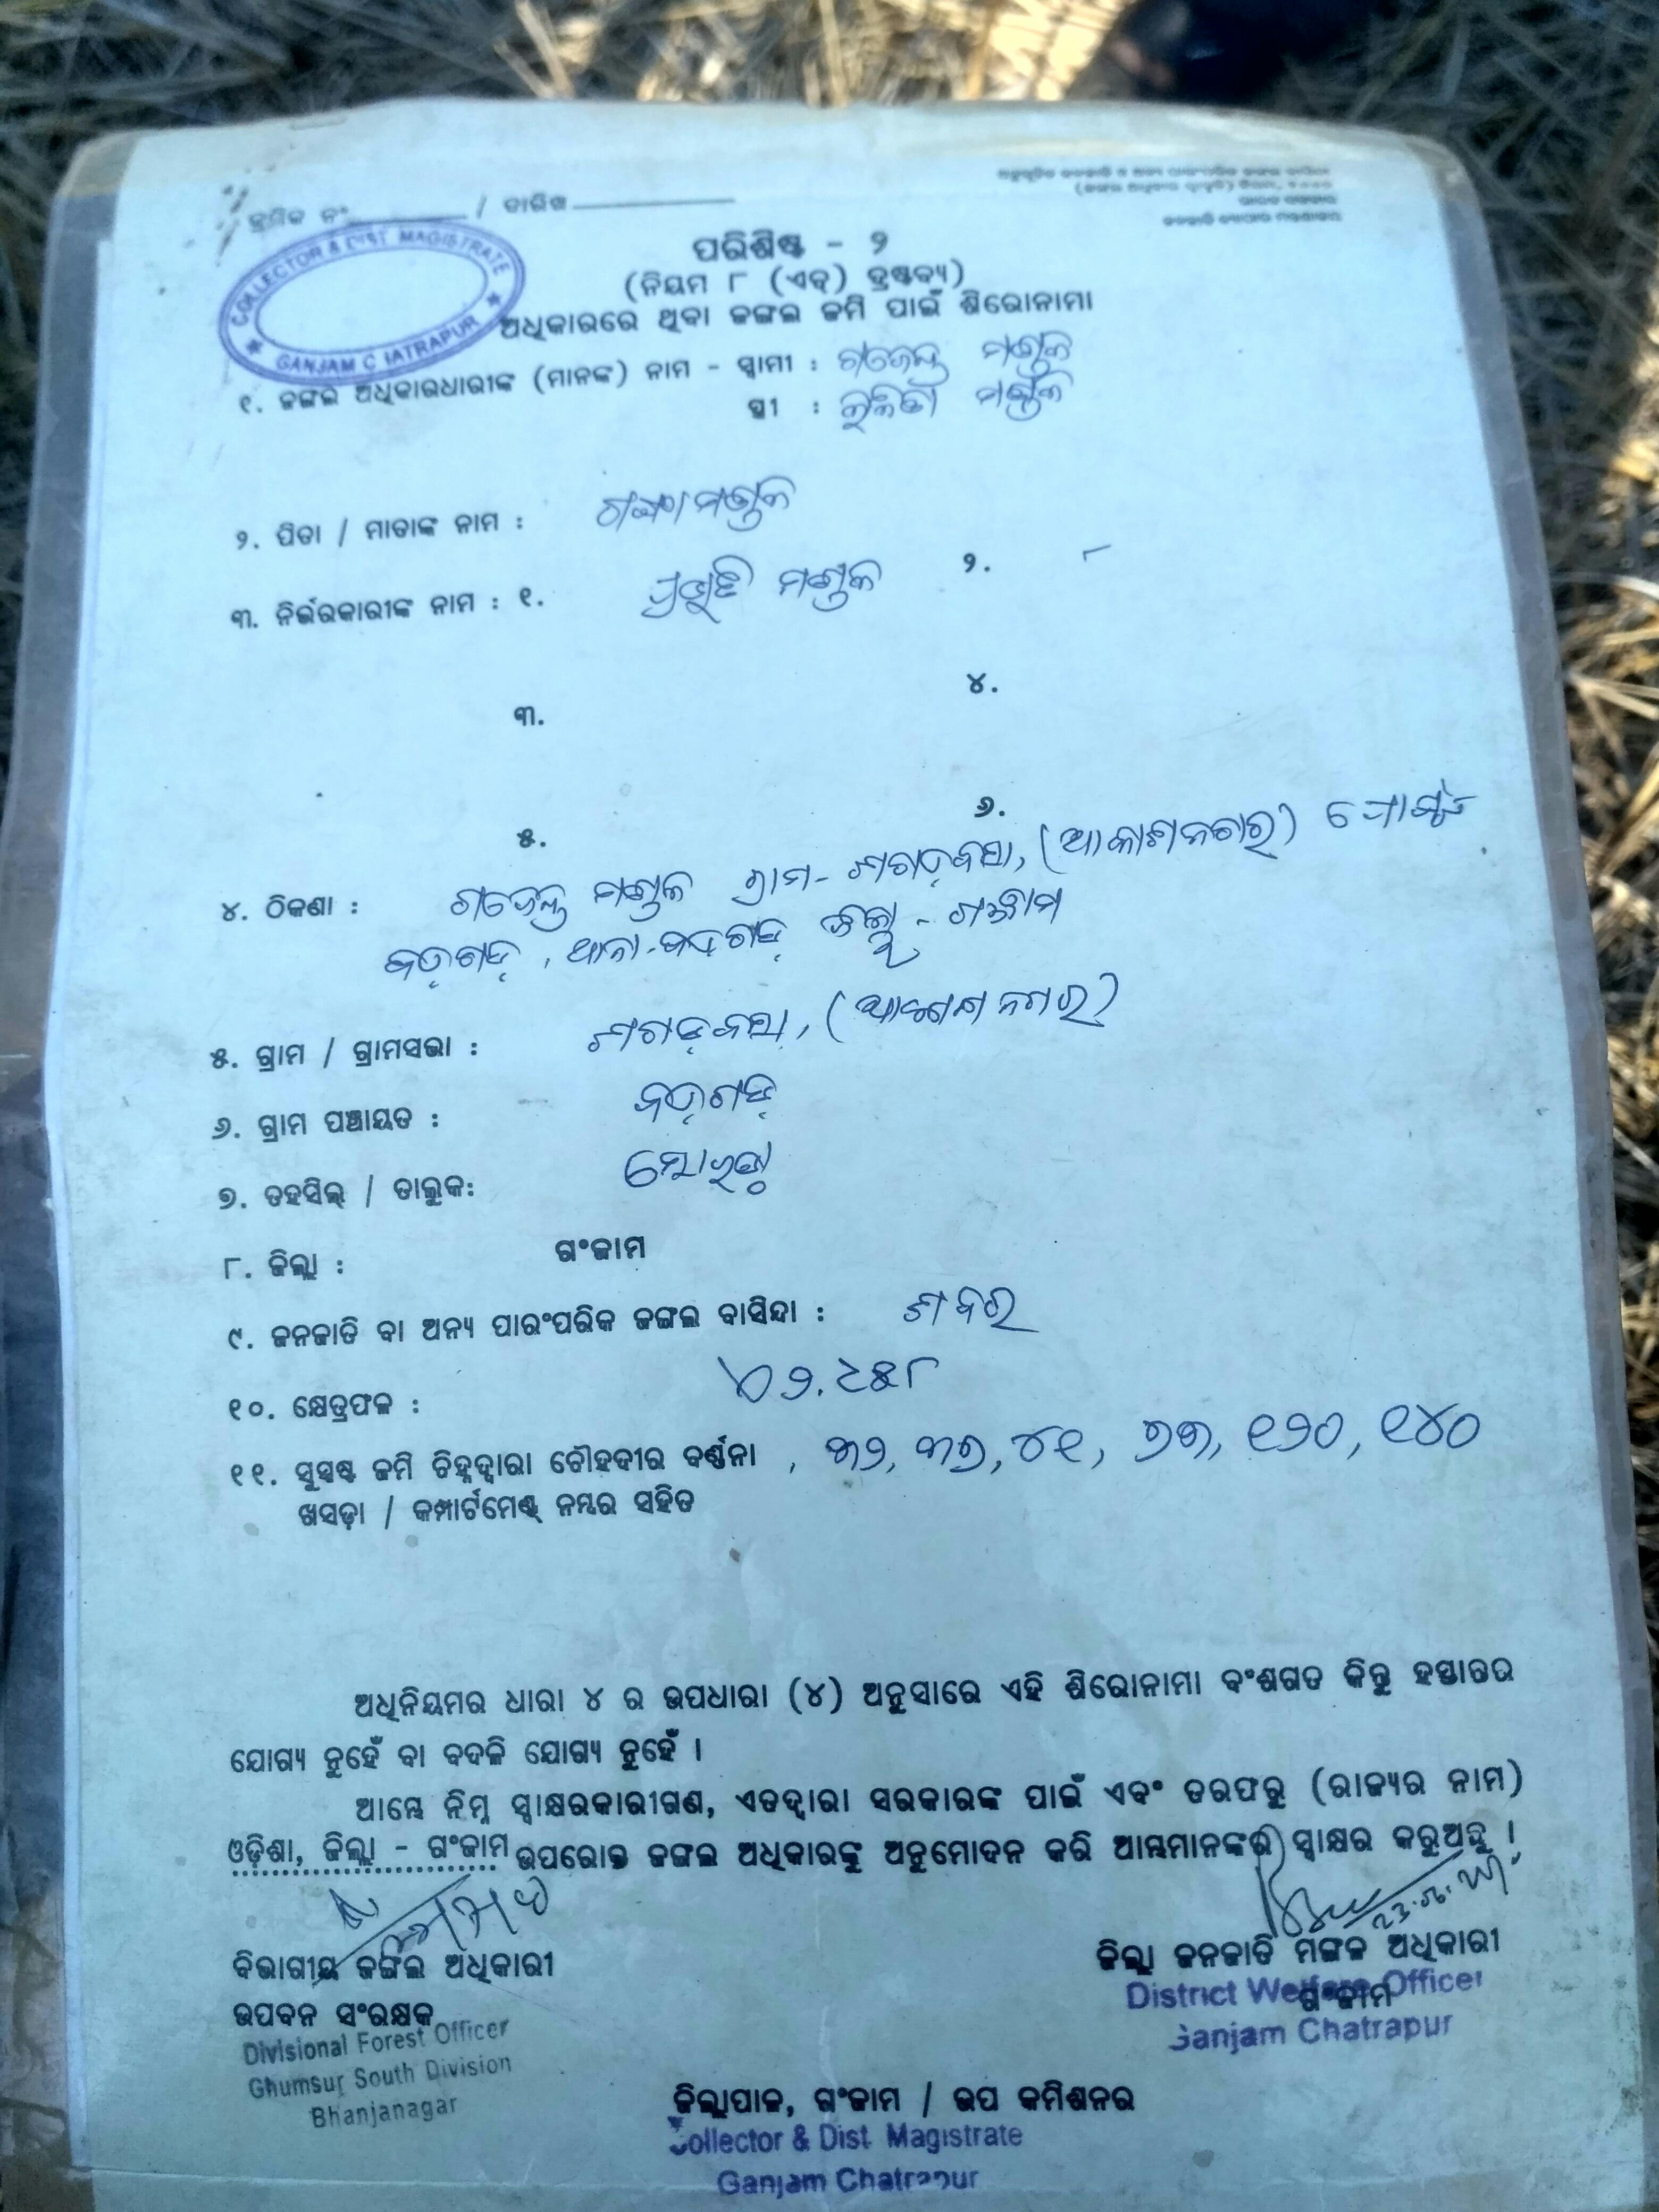 କ୍ରମିକ ନଂ / ତାରିଖ
COLLECTOR & DIST MAGISTRATE
GANJAM C IATRAPUR
ପରିଶିଷ୍ଟ - ୨
(ନିୟମ ୮ (ଏଚ୍) ଦ୍ରଷ୍ଟବ୍ୟ)
ଅଧିକାରରେ ଥିବା ଜଙ୍ଗଲ ଜମି ପାଇଁ ଶିରୋନାମା
୧. ଜଙ୍ଗଲ ଅଧିକାରଧାରୀଙ୍କ (ମାନଙ୍କ) ନାମ - ସ୍ୱାମୀ : ଗଜେନ୍ଦ୍ର ମଣ୍ଡଳ
ସ୍ତ୍ରୀ : ମଣ୍ଡଳ
୨. ପିତା / ମାତାଙ୍କ ନାମ : ମଣ୍ଡଳ
୩. ନିର୍ଭରକାରୀଙ୍କ ନାମ : ୧. ମଣ୍ଡଳ ୨.
୩. ୪.
୫. ୬.
୪. ଠିକଣା : ଗଜେନ୍ଦ୍ର ମଣ୍ଡଳ ଗ୍ରାମ- (ଆକାଶନଗର) ପୋଷ୍ଟ
ବଡ଼ଗଡ଼, ଥାନା-ବଡଗଡ଼ ଜିଲ୍ଲା - ଗଞ୍ଜାମ
୫. ଗ୍ରାମ / ଗ୍ରାମସଭା : (ଆକାଶନଗର)
୬. ଗ୍ରାମ ପଞ୍ଚାୟତ : ବଡ଼ଗଡ଼
୭. ତହସିଲ୍ / ତାଲୁକ: ସୋରଡ଼ା
୮. ଜିଲ୍ଲା : ଗଂଜାମ
୯. ଜନଜାତି ବା ଅନ୍ୟ ପାରଂପରିକ ଜଙ୍ଗଲ ବାସିନ୍ଦା : ଶବର
୧୦. କ୍ଷେତ୍ରଫଳ :
୧୧. ସୁସ୍ପଷ୍ଟ ଜମି ଚିହ୍ନଦ୍ୱାରା ଚୌହଦୀର ବର୍ଣ୍ଣନା , ୩୨, ୩୭, ୪୧, ୭୩, ୧୨୦, ୧୪୦
ଖସଡ଼ା / କମ୍ପାର୍ଟମେଣ୍ଟ୍ ନମ୍ବର ସହିତ
ଅଧିନିୟମର ଧାରା ୪ ର ଉପଧାରା (୪) ଅନୁସାରେ ଏହି ଶିରୋନାମା ବଂଶଗତ କିନ୍ତୁ ହସ୍ତାନ୍ତର
ଯୋଗ୍ୟ ନୁହେଁ ବା ବଦଳି ଯୋଗ୍ୟ ନୁହେଁ ।
ଆମ୍ଭେ ନିମ୍ନ ସ୍ୱାକ୍ଷରକାରୀଗଣ, ଏତଦ୍ଵାରା ସରକାରଙ୍କ ପାଇଁ ଏବଂ ତରଫରୁ (ରାଜ୍ୟର ନାମ)
ଓଡ଼ିଶା, ଜିଲ୍ଲା - ଗଂଜାମ ଉପରୋକ୍ତ ଜଙ୍ଗଲ ଅଧିକାରଙ୍କୁ ଅନୁମୋଦନ କରି ଆମ୍ଭମାନଙ୍କର ସ୍ୱାକ୍ଷର କରୁଅଛୁ ।
ବିଭାଗୀୟ ଜଙ୍ଗଲ ଅଧିକାରୀ
ଉପବନ ସଂରକ୍ଷକ
Divisional Forest Officer
Ghumsur South Division
Bhanjanagar
ଜିଲ୍ଲା ଜନଜାତି ମଙ୍ଗଳ ଅଧିକାରୀ
ଗଂଜାମ
District Welfare Officer
Ganjam Chatrapur
ଜିଲ୍ଲାପାଳ, ଗଂଜାମ / ଉପ କମିଶନର
Collector & Dist. Magistrate
Ganjam Chatrapur